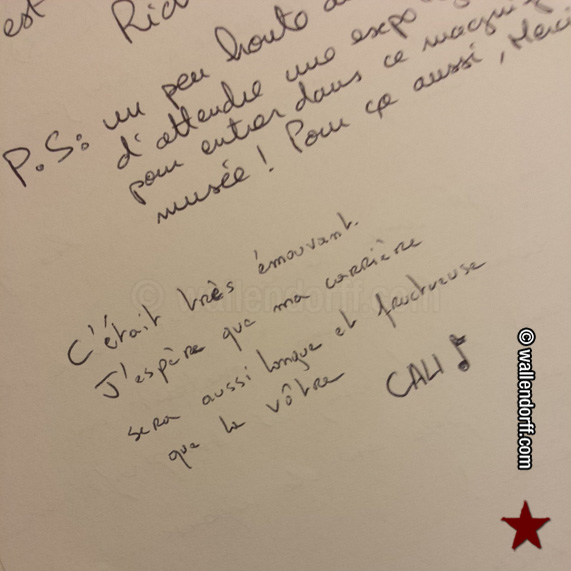 est
Rid
P.S: un peu honte
d'attendre une expo
pour entrer dans ce
musée ! Pour ça aussi, Merci
C'était très émouvant.
J'espère que ma carrière
sera aussi longue et fructueuse
que la vôtre
CALI
© wallendorff.com
© wallendorff.com